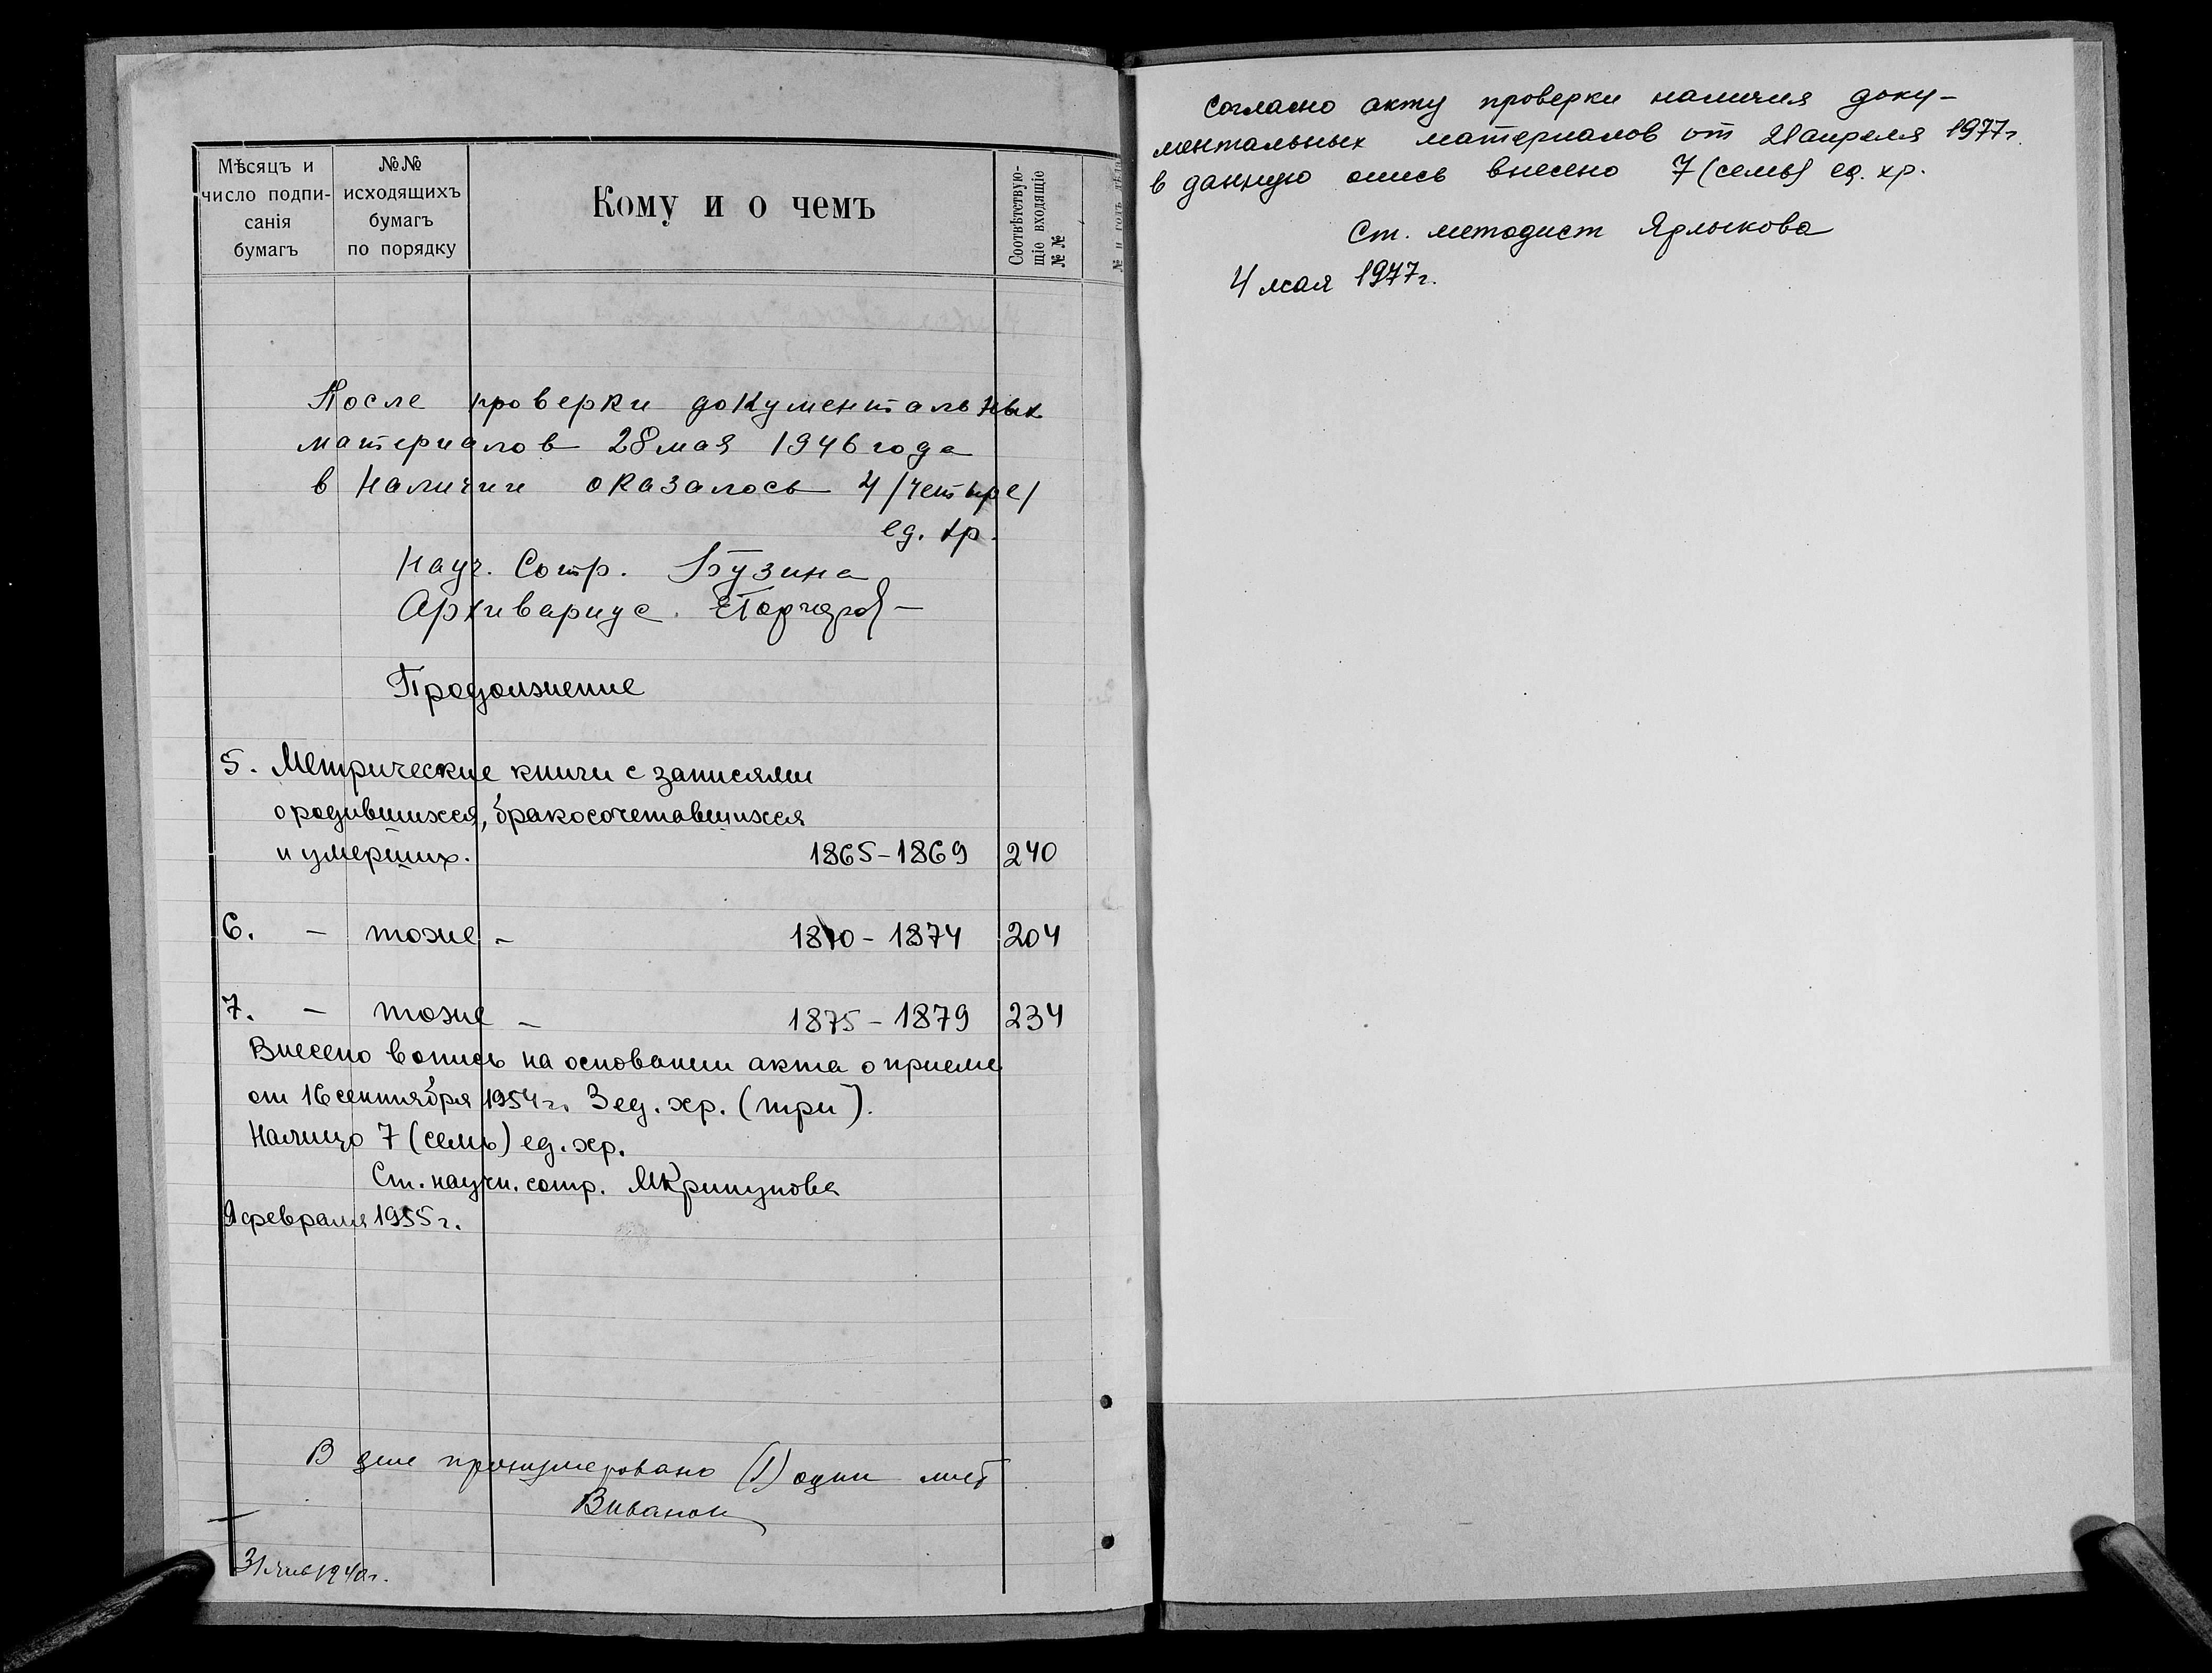 Мѣсяцъ и
число подпи-
санія
бумагъ
№№
исходящихъ
бумагъ
по порядку
Кому и о чемъ
Соотвѣтствую-
щіе входящіе
№№
После проверки документальных
материалов 28 мая 1946 года
в наличии оказалось 4 /четыре/
ед. хр.
Науч. Сотр. Бузина
Архивариус.
Продолжение
5. Метрические книги с записями
о родившихся, бракосочетавшихся
и умерших. 1865-1869 240
6. - тоже - 1870 - 1874 204
7. - тоже - 1875 - 1879 234
Внесено в опись на основании акта о приеме
от 16 сентября 1954 г. 3 ед. хр. (три).
Налицо 7 (семь) ед. хр.
Ст. научн. сотр. МКрипунова
9 февраля 1955 г.
В деле пронумеровано (1) один лист
31 1940 г.
Согласно акту проверки наличия доку-
ментальных материалов от 21 апреля 1977 г.
в данную опись внесено 7 (семь) ед. хр.
Ст. методист Ярлыкова
4 мая 1977 г.